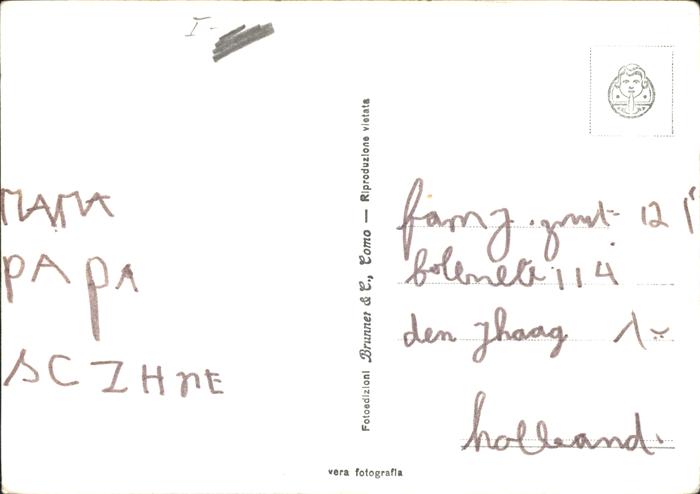 I-
MAMA
PAPA
SCZHNE
Fotoedizioni Brunner & C., Como — Riproduzione vietata
fam J. 12
114
den Jhaag 1-
holland.
vera fotografia